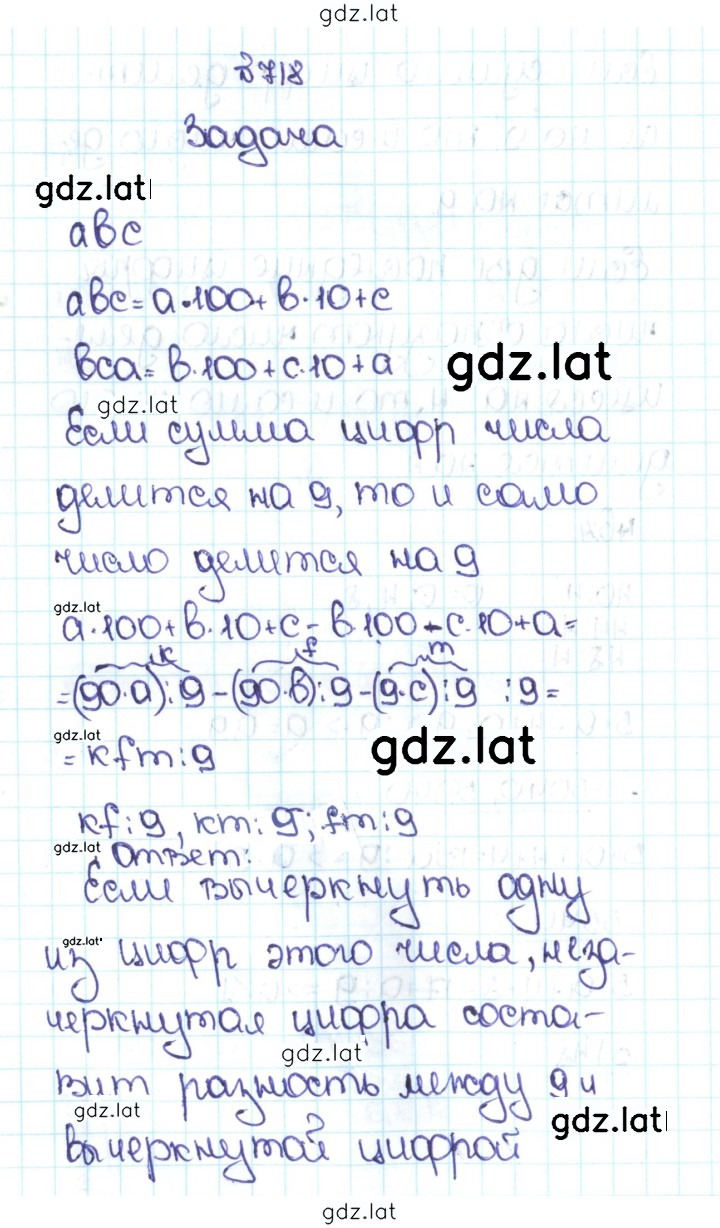 gdz.lat
№718
Задача
gdz.lat
авс
авс = а·100 + в·10 + с
вса = в·100 + с·10 + а
gdz.lat
gdz.lat
Если сумма цифр числа
делится на 9, то и само
число делится на 9
gdz.lat
а·100 + в·10 + с - в·100 - с·10 + а =
k f m
= (90·а) : 9 - (90·в) : 9 - (9·с) : 9 : 9 =
gdz.lat
= kfm : 9
gdz.lat
kf : 9, km : 9; fm : 9
gdz.lat
Ответ:
Если вычеркнуть одну
gdz.lat
из цифр этого числа, неза-
черкнутая цифра соста-
gdz.lat
вит разность между 9 и
gdz.lat
gdz.lat
вычеркнутой цифрой
gdz.lat